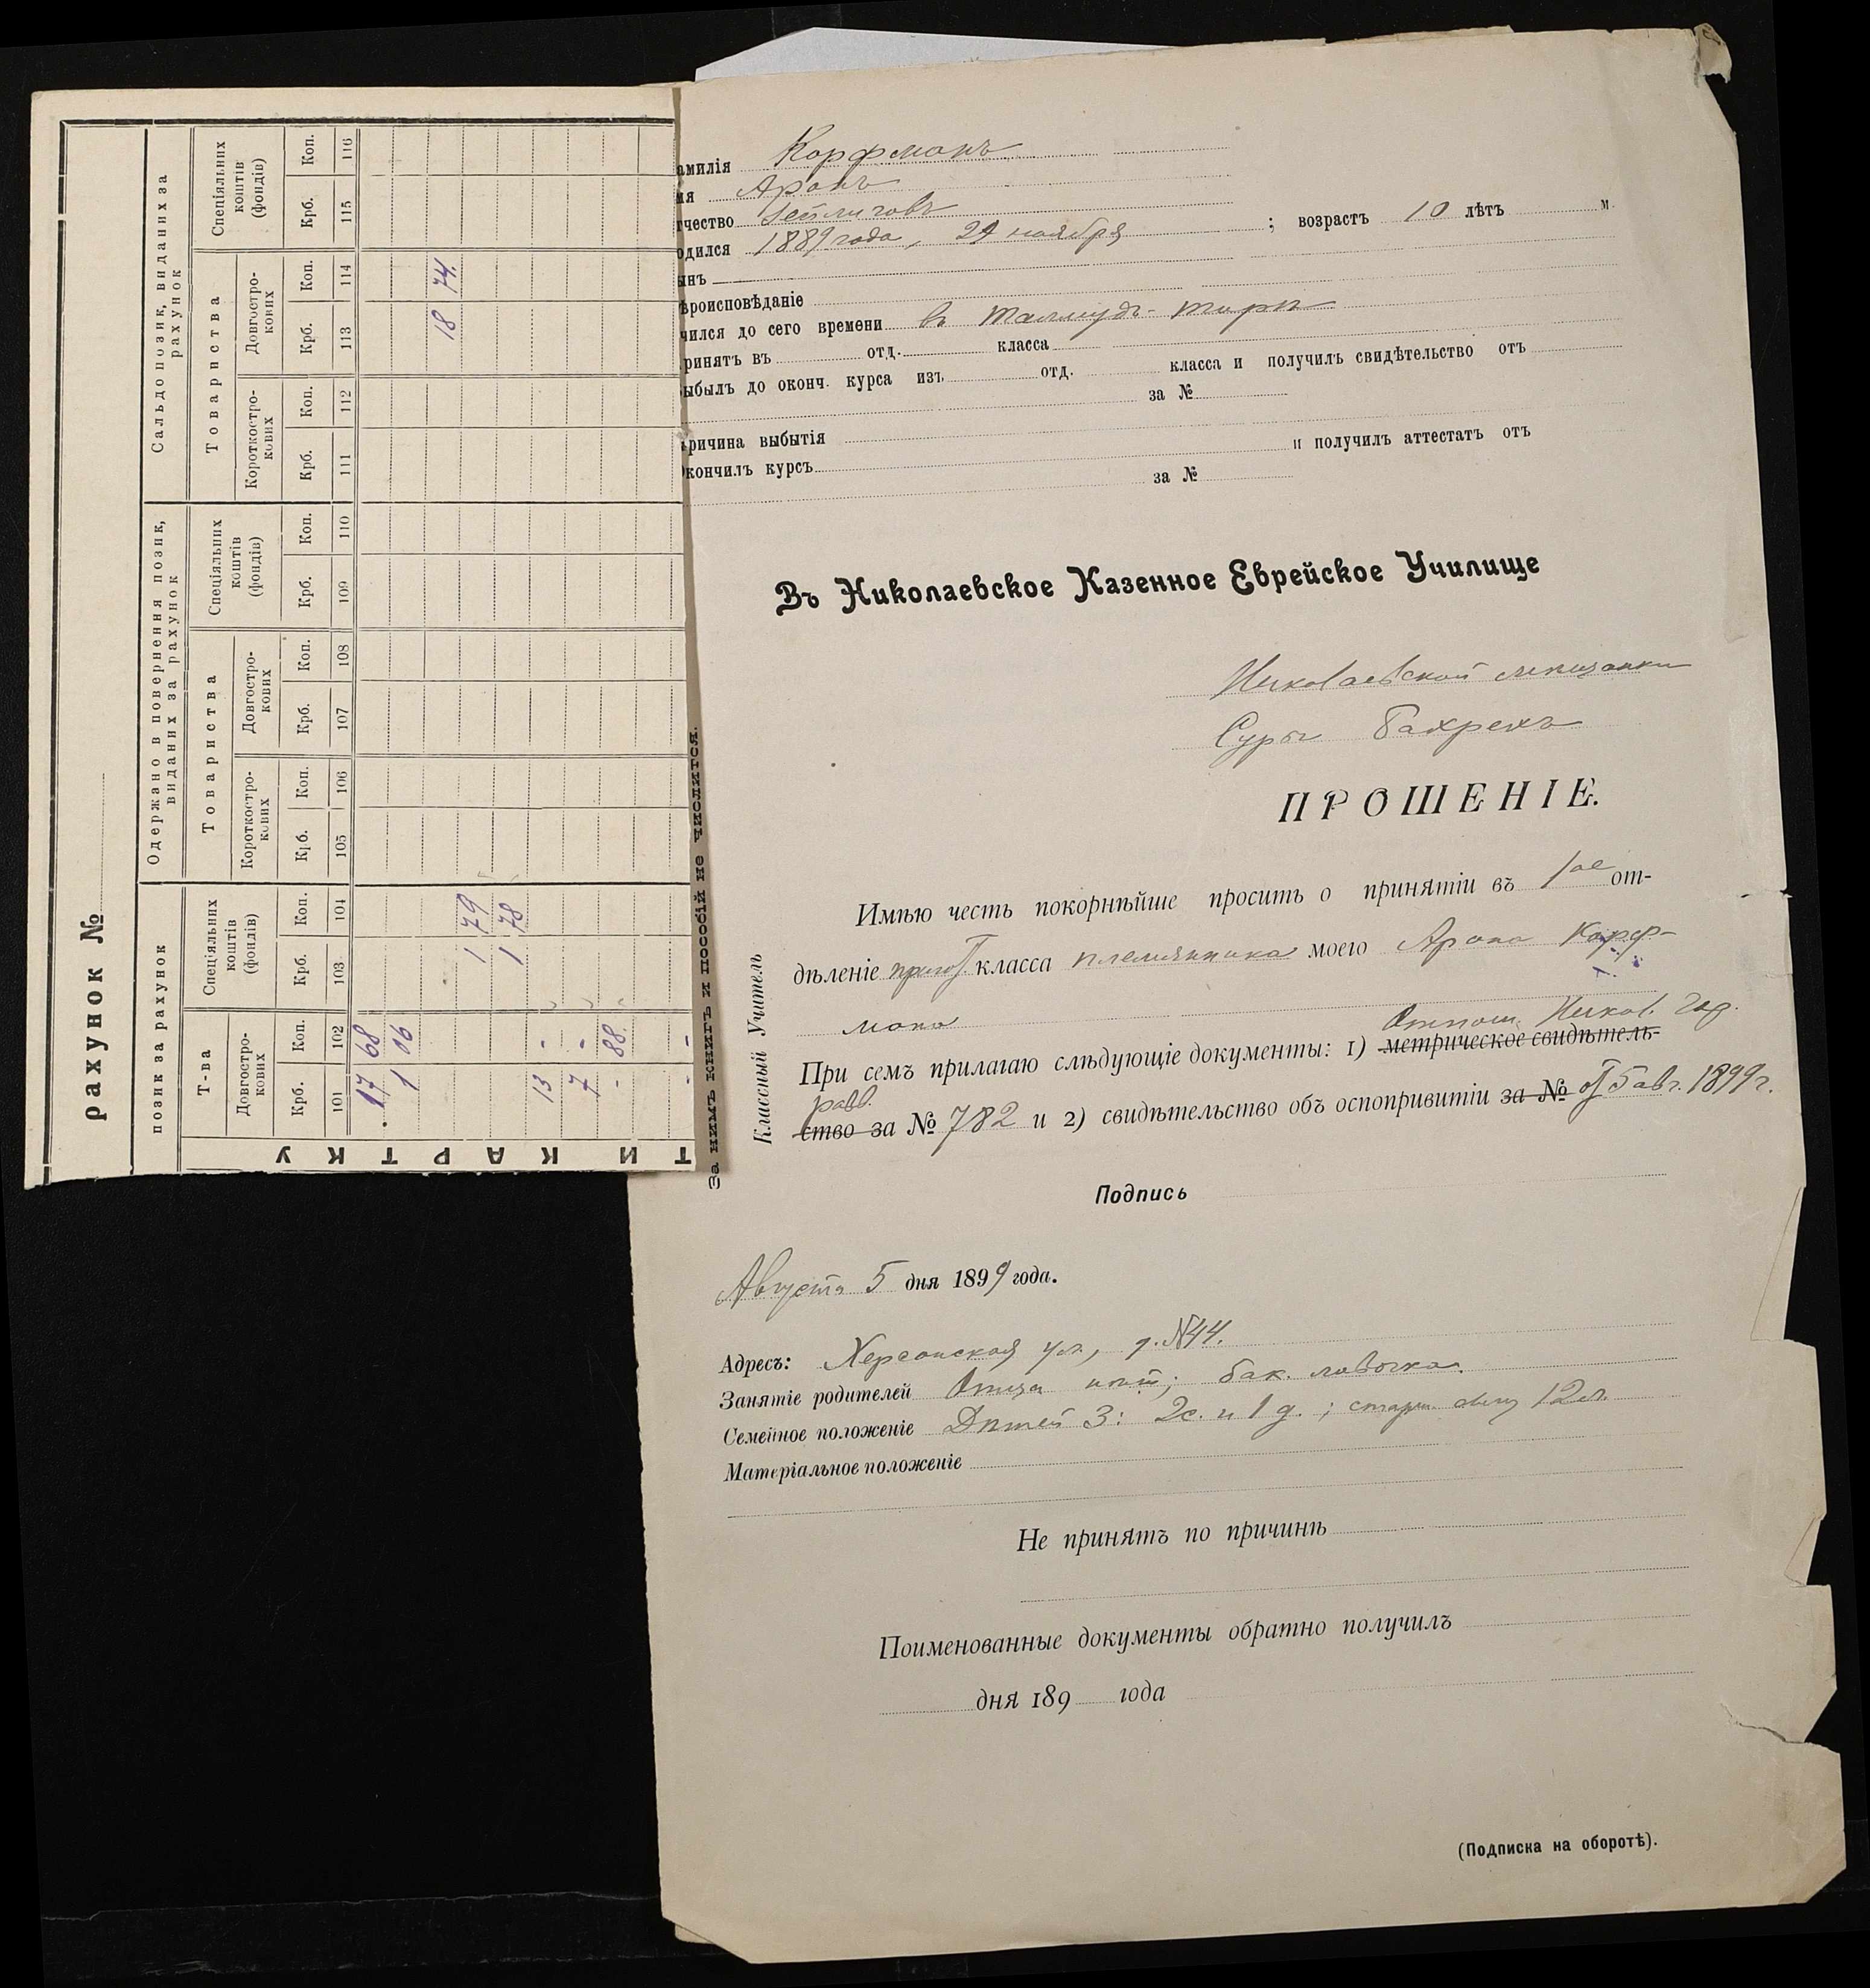 рахунок №
позик за рахунок
Одержано в повернення позик, виданих за рахунок
Сальдо позик, виданих за рахунок
Т-ва
Спеціяльних коштів (фондів)
Товариства
Спеціяльних коштів (фондів)
Товариства
Спеціяльних коштів (фондів)
Довгостро-кових
Короткостро-кових
Довгостро-кових
Короткостро-кових
Довгостро-кових
Крб. Коп. Крб. Коп. Крб. Коп. Крб. Коп. Крб. Коп. Крб. Коп. Крб. Коп. Крб. Коп.
101 102 103 104 105 106 107 108 109 110 111 112 113 114 115 116
17 68
1 06
18 74
1 79
1 78
13 -
7 -
- 88
- -
Т И К А Р Т К У
амилія Корфманъ
мя Аронъ
тчество Зейлиговъ
одился 1889 года, 29 ноября ; возрастъ 10 лѣтъ м.
ынъ
ѣроисповѣданіе
чился до сего времени въ Талмудъ-торѣ
ринятъ въ отд. класса
ыбылъ до оконч. курса изъ отд. класса и получилъ свидѣтельство отъ
за №
ричина выбытія
кончилъ курсъ и получилъ аттестатъ отъ
за №
За нимъ книгъ и пособій не числится.
Классный Учитель
Въ Николаевское Казенное Еврейское Училище
Николаевской мѣщанки
Суры Бахрехъ
ПРОШЕНІЕ.
Имѣю честь покорнѣйше просить о принятіи въ 1ое от-
дѣленіе пригот. класса племянника моего Арона Корф-
мана
Отнош. Никол. гор.
При семъ прилагаю слѣдующіе документы: 1) метрическое свидѣтель-
равв.
ство за № 782 и 2) свидѣтельство объ оспопривитіи за № от 5 авг. 1899 г.
Подпись
Августа 5 дня 1899 года.
Адресъ: Херсонская ул., д. №44.
Занятіе родителей Отца нѣт; бак. лавочка.
Семейное положеніе Дѣтей 3: 2 с. и 1 д.; старш. сыну 12 л.
Матеріальное положеніе
Не принятъ по причинѣ
Поименованные документы обратно получилъ
дня 189 года
(Подписка на оборотѣ).